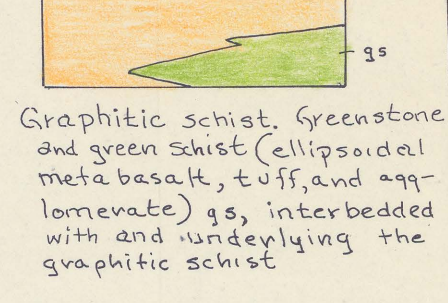 gs
Graphitic schist. Greenstone
and green schist (ellipsoidal
metabasalt, tuff, and agg-
lomerate) gs, interbedded
with and underlying the
graphitic schist